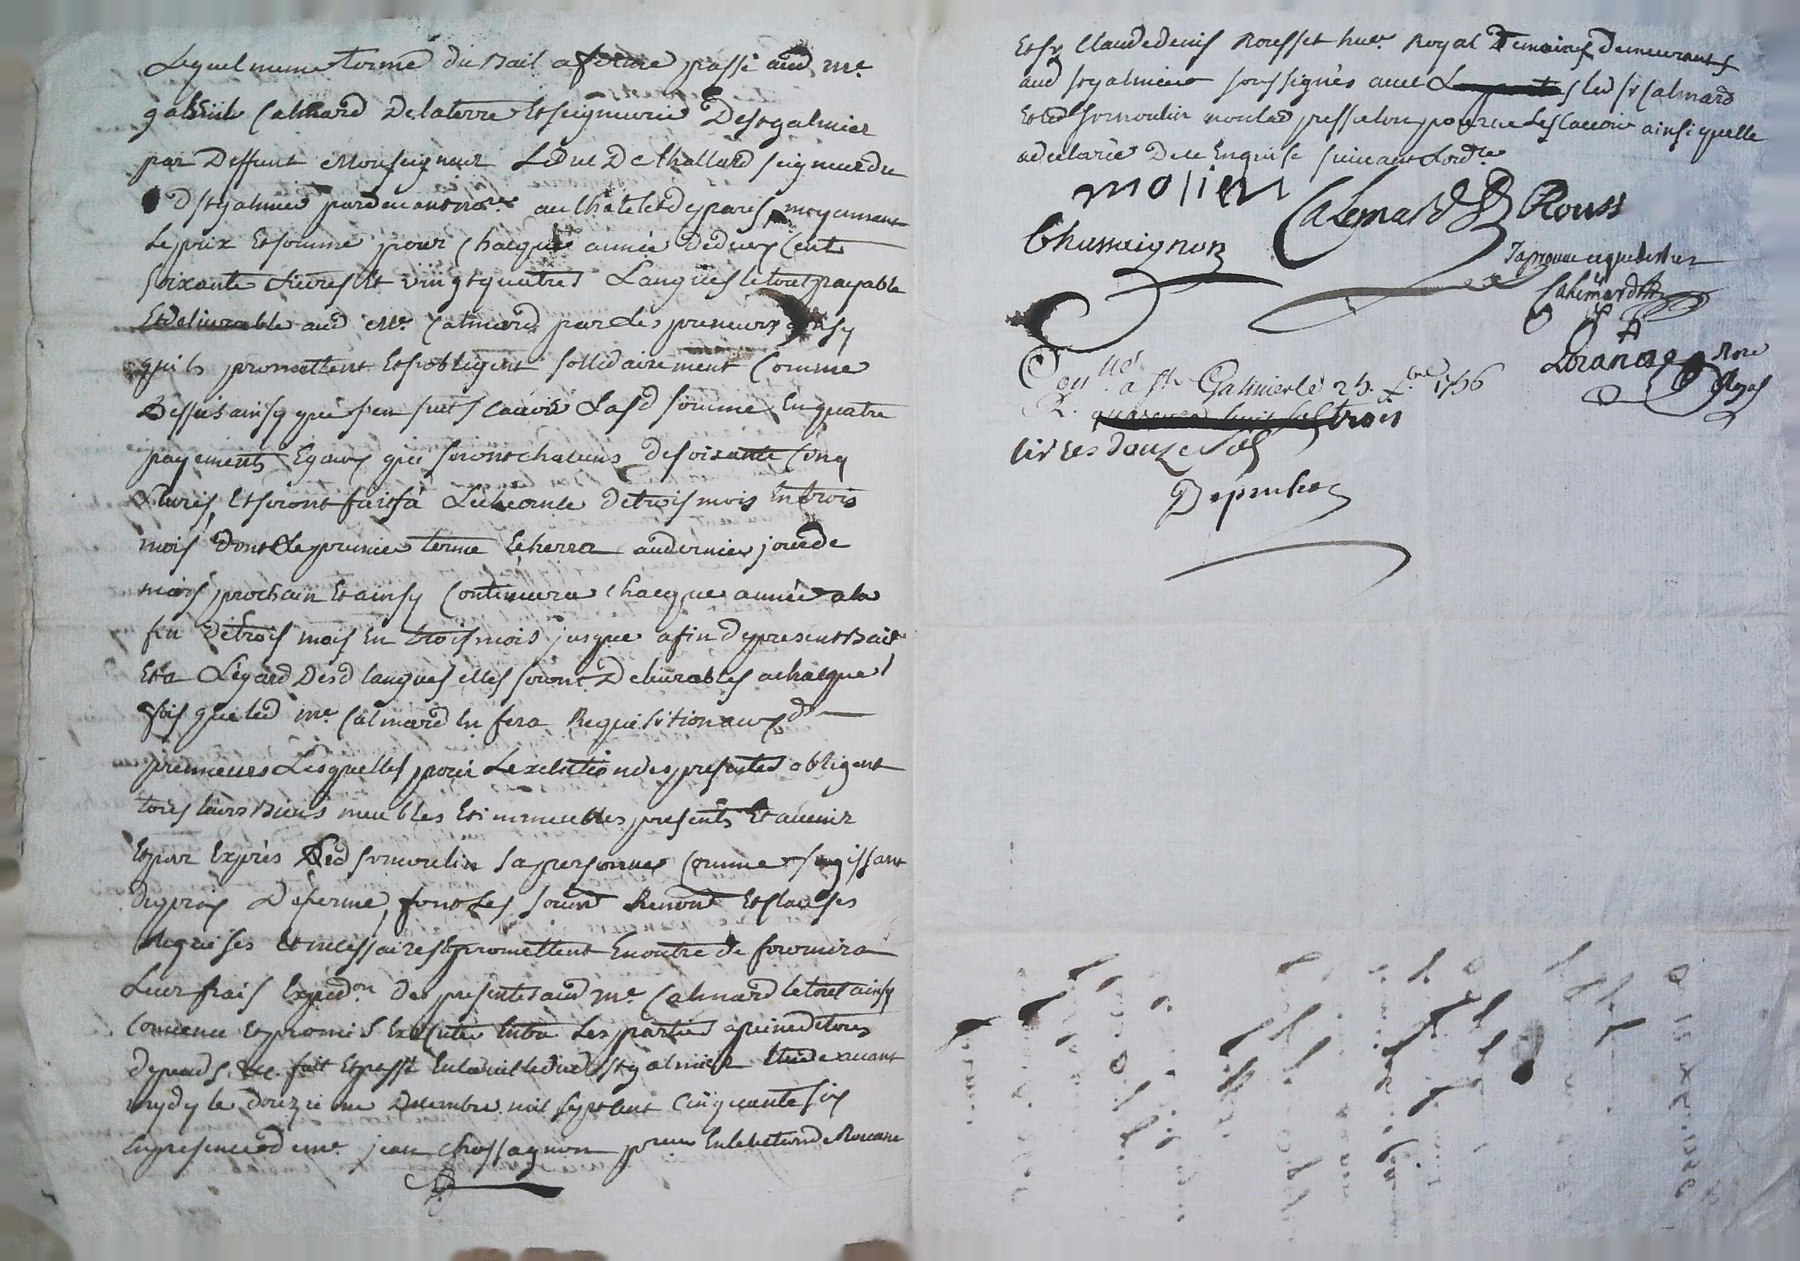 Lequel meme terme du Bail a ferme passé aud me
gabriel Calmard De laterre Et seigneurie De st galmier
par Deffunt Monseigneur Le Duc De thallard seigneur du
d st galmier pardevant no.res au Chatelet de paris, moyennant
Le prix Et somme pour chacque année De deux Cent
soixante Livres Et vingt quatres Langues le tout payable
Et delivrable aud Me Calmard par Les preneurs ainsy
quils promettent Et sobligent sollidairement Comme
Dessus ainsy que sen suit scavoir Lad somme En quatre
payements Egaux qui seront chacuns de soixante Cinq
Livres, Et seront faits a Lecheance de trois mois En trois
mois dont Le premier terme Echerra au dernier jour de
mars prochain Et ainsy Continuera chacque année a la
fin de trois mois En trois mois jusque a fin du present Bail
Et a Legard Desd langues elles seront Delivrables a chacque
fois que led me Calmard En fera Requisition auxd
preneurs Lesquelles pour Lexecution des presentes obligent
tous leurs Biens meubles Et immeubles presents Et avenir
Et par Exprès Led sr moulin sa personne Comme sagissant
du prix De ferme, font Les soumt Renont Et clauses
Requises Et necessaires Et promettent En outre de fournir a
Leur frais Expedon des presentes aud me Calmard le tout ainsy
Convenu Et promis Executer Entre Les parties a peine de tous
depends &c. fait Et passé En la ville dud st galmier Etude avant
mydy le douzieme Decembre mil sept Cent Cinquante six
En presence de me jean Chassagnon pcureur En lelection de Roanne
Et sr Claude denis Rousset huer Royal Temoins Demeurants
aud st galmier soussignés avec Les parties led sr Calmard
Et led sr moulin non lad pesselon pour ne Le scavoir ainsi quelle
a declaré De ce Enquise suivant Lordce
molien Calemard Rouss
Chassaignon
Japrouve ce que dessus
Calemard
Nore
Royal
Conllé a St Galmier le 23. Xbre 1756
R. quarante huit sols trois
livres douze sols